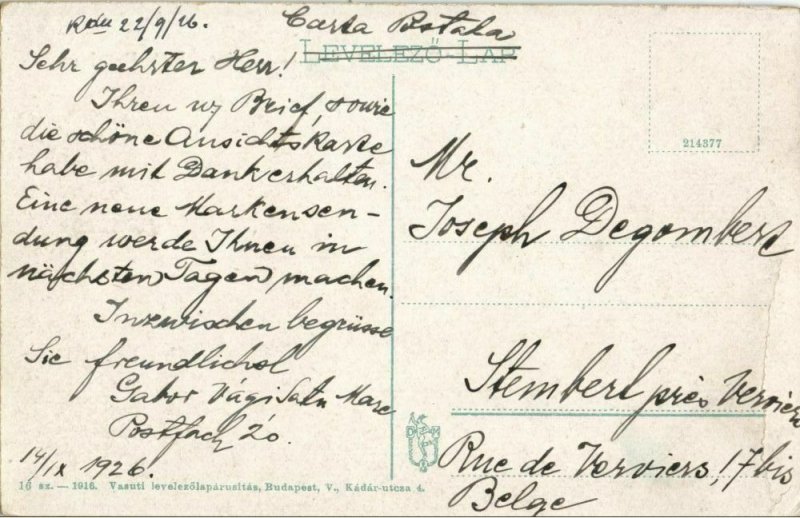 22/9/26.
Carta Postala
LEVELEZŐ-LAP
Sehr geehrter Herr!
Ihren w/ Brief, sowie
die schöne Ansichtskarte
habe mit Dank erhalten.
Eine neue Markensen-
dung werde Ihnen in
nächsten Tagen machen.
Inzwischen begrüsse
Sie freundlichst
Gabor Vági Satu Mare
Postfach 20.
14/IX 1926.
214377
Mr.
Joseph Degombert
Stembert près Verviers
Rue de Verviers, 17 bis
Belge
16 sz. — 1916. Vasuti levelezőlapárusitás, Budapest, V., Kádár-utcza 4.